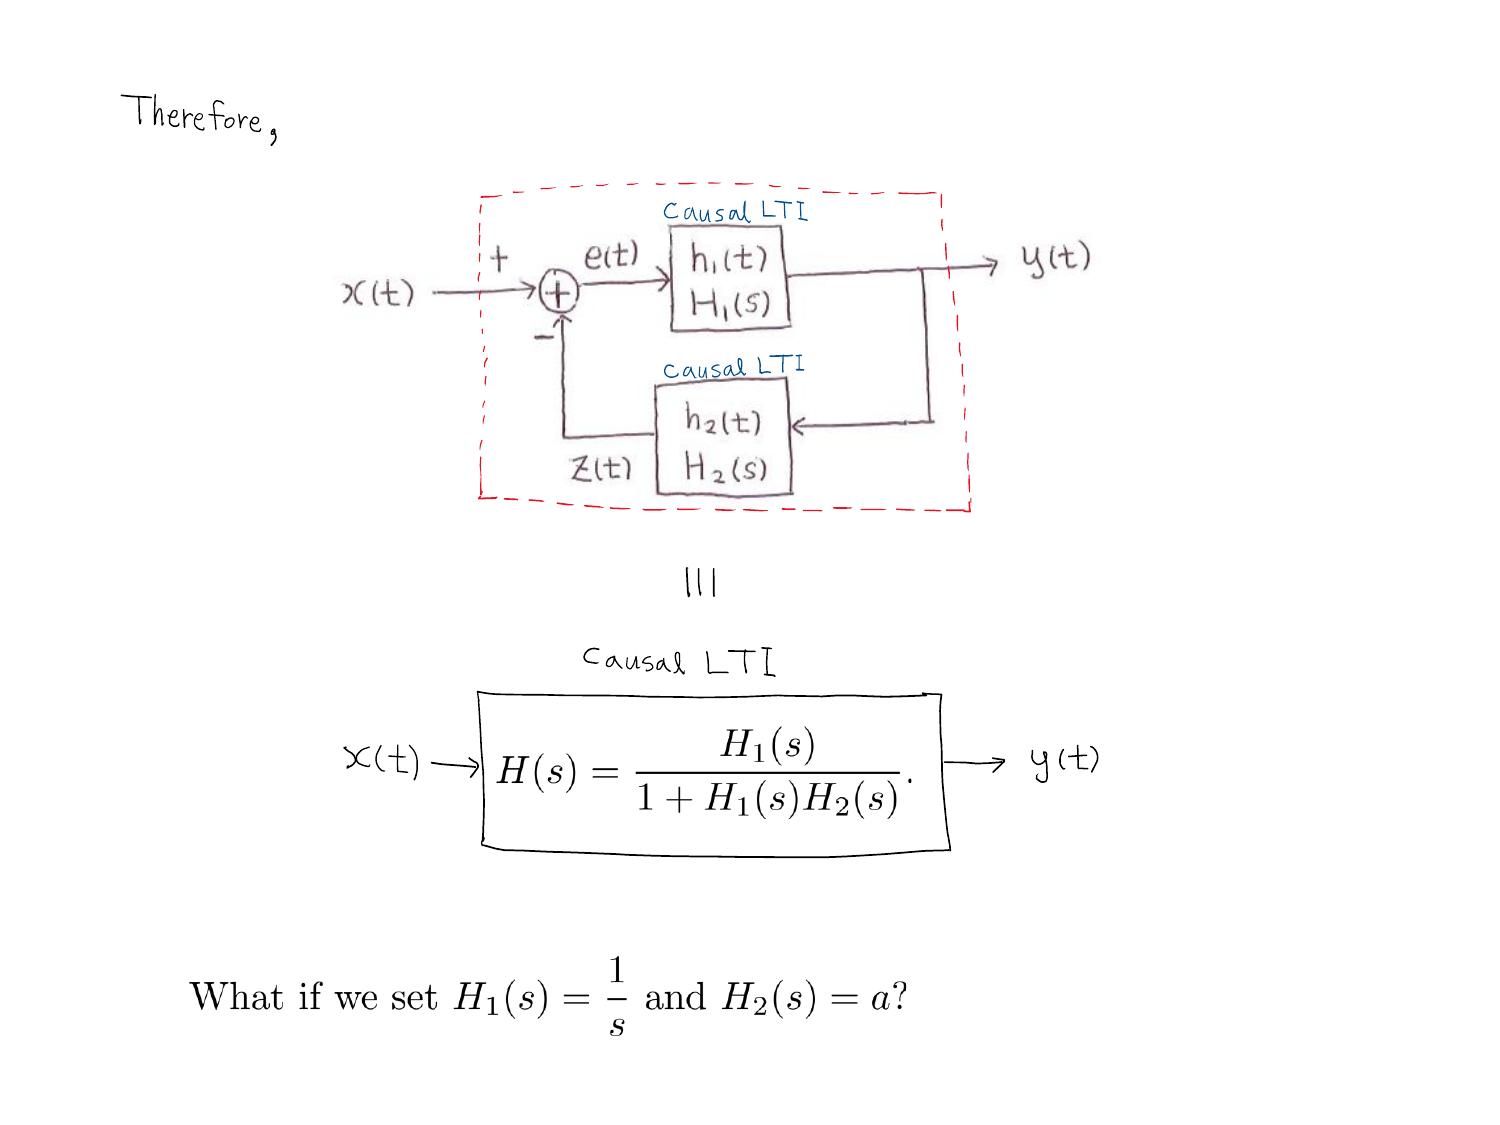 Therefore,
Causal LTI
x(t) + + e(t) h₁(t) y(t)
H₁(s)
−
Causal LTI
h₂(t)
z(t) H₂(s)
|||
Causal LTI
x(t) H(s) = H₁(s) / (1 + H₁(s)H₂(s)). y(t)
What if we set H₁(s) = 1/s and H₂(s) = a?